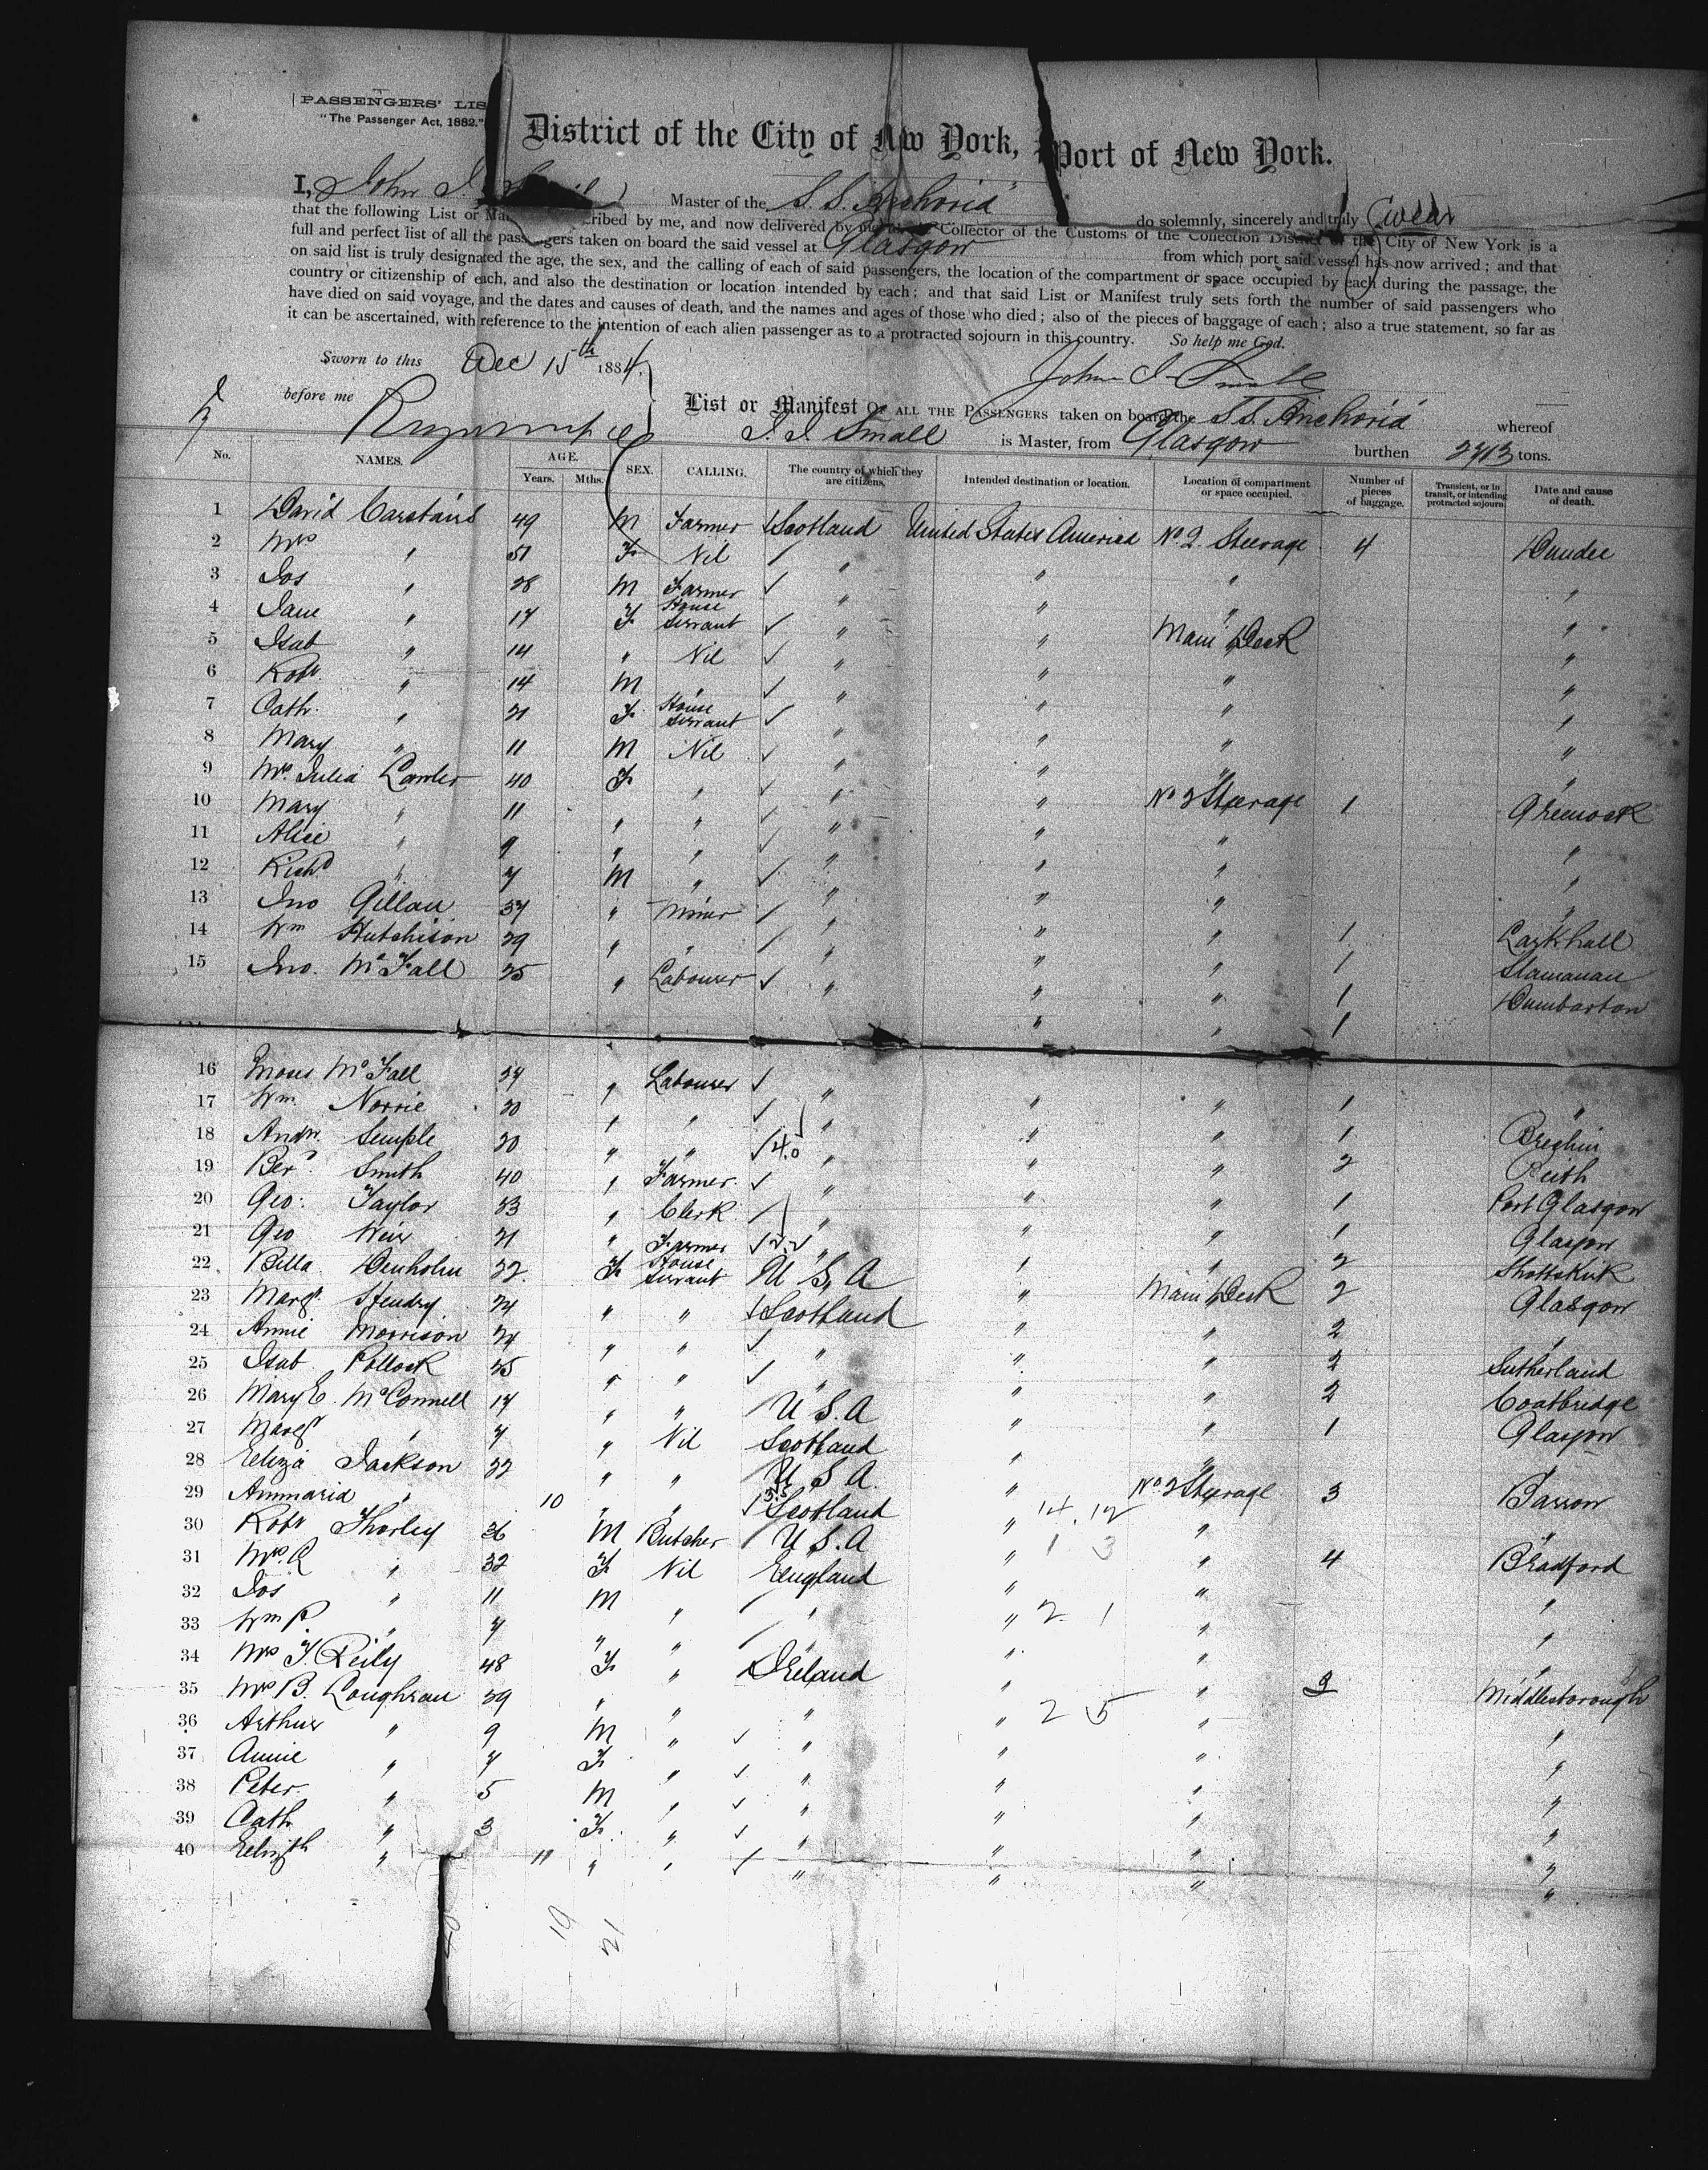 PASSENGERS' LIS
"The Passenger Act, 1882."
District of the City of New York, Port of New York.
I, John J. Master of the S.S. "Anchoria" do solemnly, sincerely and truly swear
that the following List or Ma cribed by me, and now delivered by me Collector of the Customs of the Collection District of the City of New York is a
full and perfect list of all the passengers taken on board the said vessel at Glasgow from which port said vessel has now arrived; and that
on said list is truly designated the age, the sex, and the calling of each of said passengers, the location of the compartment or space occupied by each during the passage, the
country or citizenship of each, and also the destination or location intended by each; and that said List or Manifest truly sets forth the number of said passengers who
have died on said voyage, and the dates and causes of death, and the names and ages of those who died; also of the pieces of baggage of each; also a true statement, so far as
it can be ascertained, with reference to the intention of each alien passenger as to a protracted sojourn in this country. So help me God.
Sworn to this Dec 15th 1884, John J. Small
before me
List or Manifest OF ALL THE PASSENGERS taken on board the S.S. Anchoria whereof
J. J. Small is Master, from Glasgow burthen 2713 tons.
No. NAMES. AGE. Years. Mths. SEX. CALLING. The country of which they are citizens. Intended destination or location. Location of compartment or space occupied. Number of pieces of baggage. Transient, or in transit, or intending protracted sojourn Date and cause of death.
1 David Carstairs 49 M Farmer Scotland United States America No. 2 Steerage 4 Dundee
2 Mrs " 51 F Nil " " " "
3 Jos " 28 M Farmer " " " "
4 Jane " 17 F House Servant " " Main Deck "
5 Isab " 14 " Nil " " " "
6 Robt " 14 M " " " " "
7 Cath. " 21 F House Servant " " " "
8 Mary " 11 M Nil " " " "
9 Mrs Julia Lawler 40 F " " " No 2 Steerage 1 Greenock
10 Mary " 11 " " " " " "
11 Alice " 9 " " " " " "
12 Richd " 7 M " " " " "
13 Jno Gillan 37 " Miner " " " 1 Larkhall
14 Wm Hutchison 29 " " " " " 1 Slamanan
15 Jno. McFall 25 " Labourer " " " 1 Dumbarton
" " 1
16 McFall 24 " Labourer " " " 1 "
17 Wm. Norrie 20 " " " " " 1 Brechin
18 Andw. Semple 20 " " " " " 2 Beith
19 Smith 40 " Farmer " " " 1 Port Glasgow
20 Geo. Taylor 33 " Clerk " " " 1 Glasgow
21 Geo Weir 21 " Farmer " " " 2 Shottskirk
22 Bella Denholm 22 F House Servant U S A " Main Deck 2 Glasgow
23 Margt. Hendry 24 " " Scotland " " 2 "
24 Annie Morrison 24 " " " " " 2 Sutherland
25 Isab Pollock 25 " " " " " 2 Coatbridge
26 Mary E. McConnell 17 " " U S. A " " 1 Glasgow
27 Margt " 7 " Nil Scotland " " "
28 Eliza Jackson 22 " " U S A. " No 2 Steerage 3 Barrow
29 Ammaria " 10 " " Scotland " " "
30 Robt Thorley 36 M Butcher U S. A " " 4 Bradford
31 Mrs. R " 32 F Nil England " " "
32 Jos " 11 M " " " " "
33 Wm R. " 7 " " " " " "
34 Mrs T. Reily 48 F " Ireland " " 2 Middlesborough
35 Mrs B. Loughran 29 " " " " " "
36 Arthur " 9 M " " " " "
37 Annie " 7 F " " " " "
38 Peter " 5 M " " " " "
39 Cath " 3 F " " " " "
40 Elizth " 11 " " " " " "
19 21